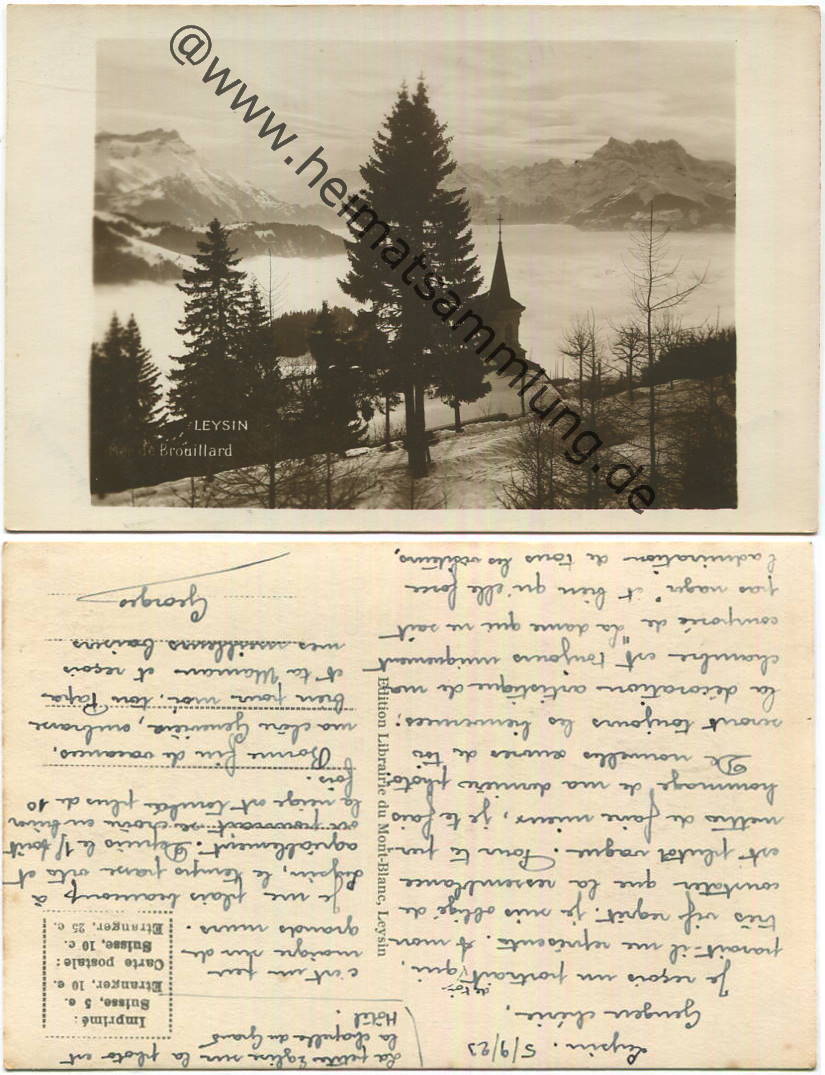 @www.heimatsammlung.de
LEYSIN
Mer de Brouillard
Leysin. 5/9/23
chérie,
de toi
Je reçois un portrait qui,
paraît-il me représente. A mon
très vif regret, je suis obligé de
constater que la ressemblance
est plutôt vague. Pour te per-
mettre de faire mieux, je te fais
hommage de ma dernière photo.
De nouvelles œuvres de toi
seront toujours les bienvenues;
la décoration artistique de ma
chambre est toujours uniquement
composée de "La dame qui ne sait
pas nager" et bien qu'elle force
l'admiration de tous les visiteurs,
Edition Librairie du Mont-Blanc, Leysin
La petite Eglise sur la photo est
la chapelle du Grand
Hôtel.
Imprimé:
Suisse, 5 c.
Etranger, 10 c.
Carte postale:
Suisse, 10 c.
Etranger, 25 c.
c'est un peu
maigre sur de
grands murs.
Je me plais beaucoup à
Leysin, le temps passe vite et
agréablement. Depuis le 1er Août
où se croire en hiver
la neige est tombée plus de 10
fois.
Bonne fin de vacances,
ma chère Geneviève, embrasse
bien pour moi, ton Papa
et ta Maman et reçois
mes meilleurs baisers
Georges